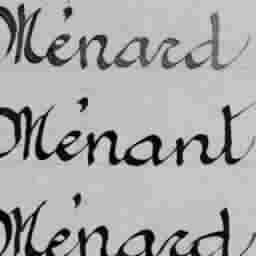 Ménard
Ménant
Ménard